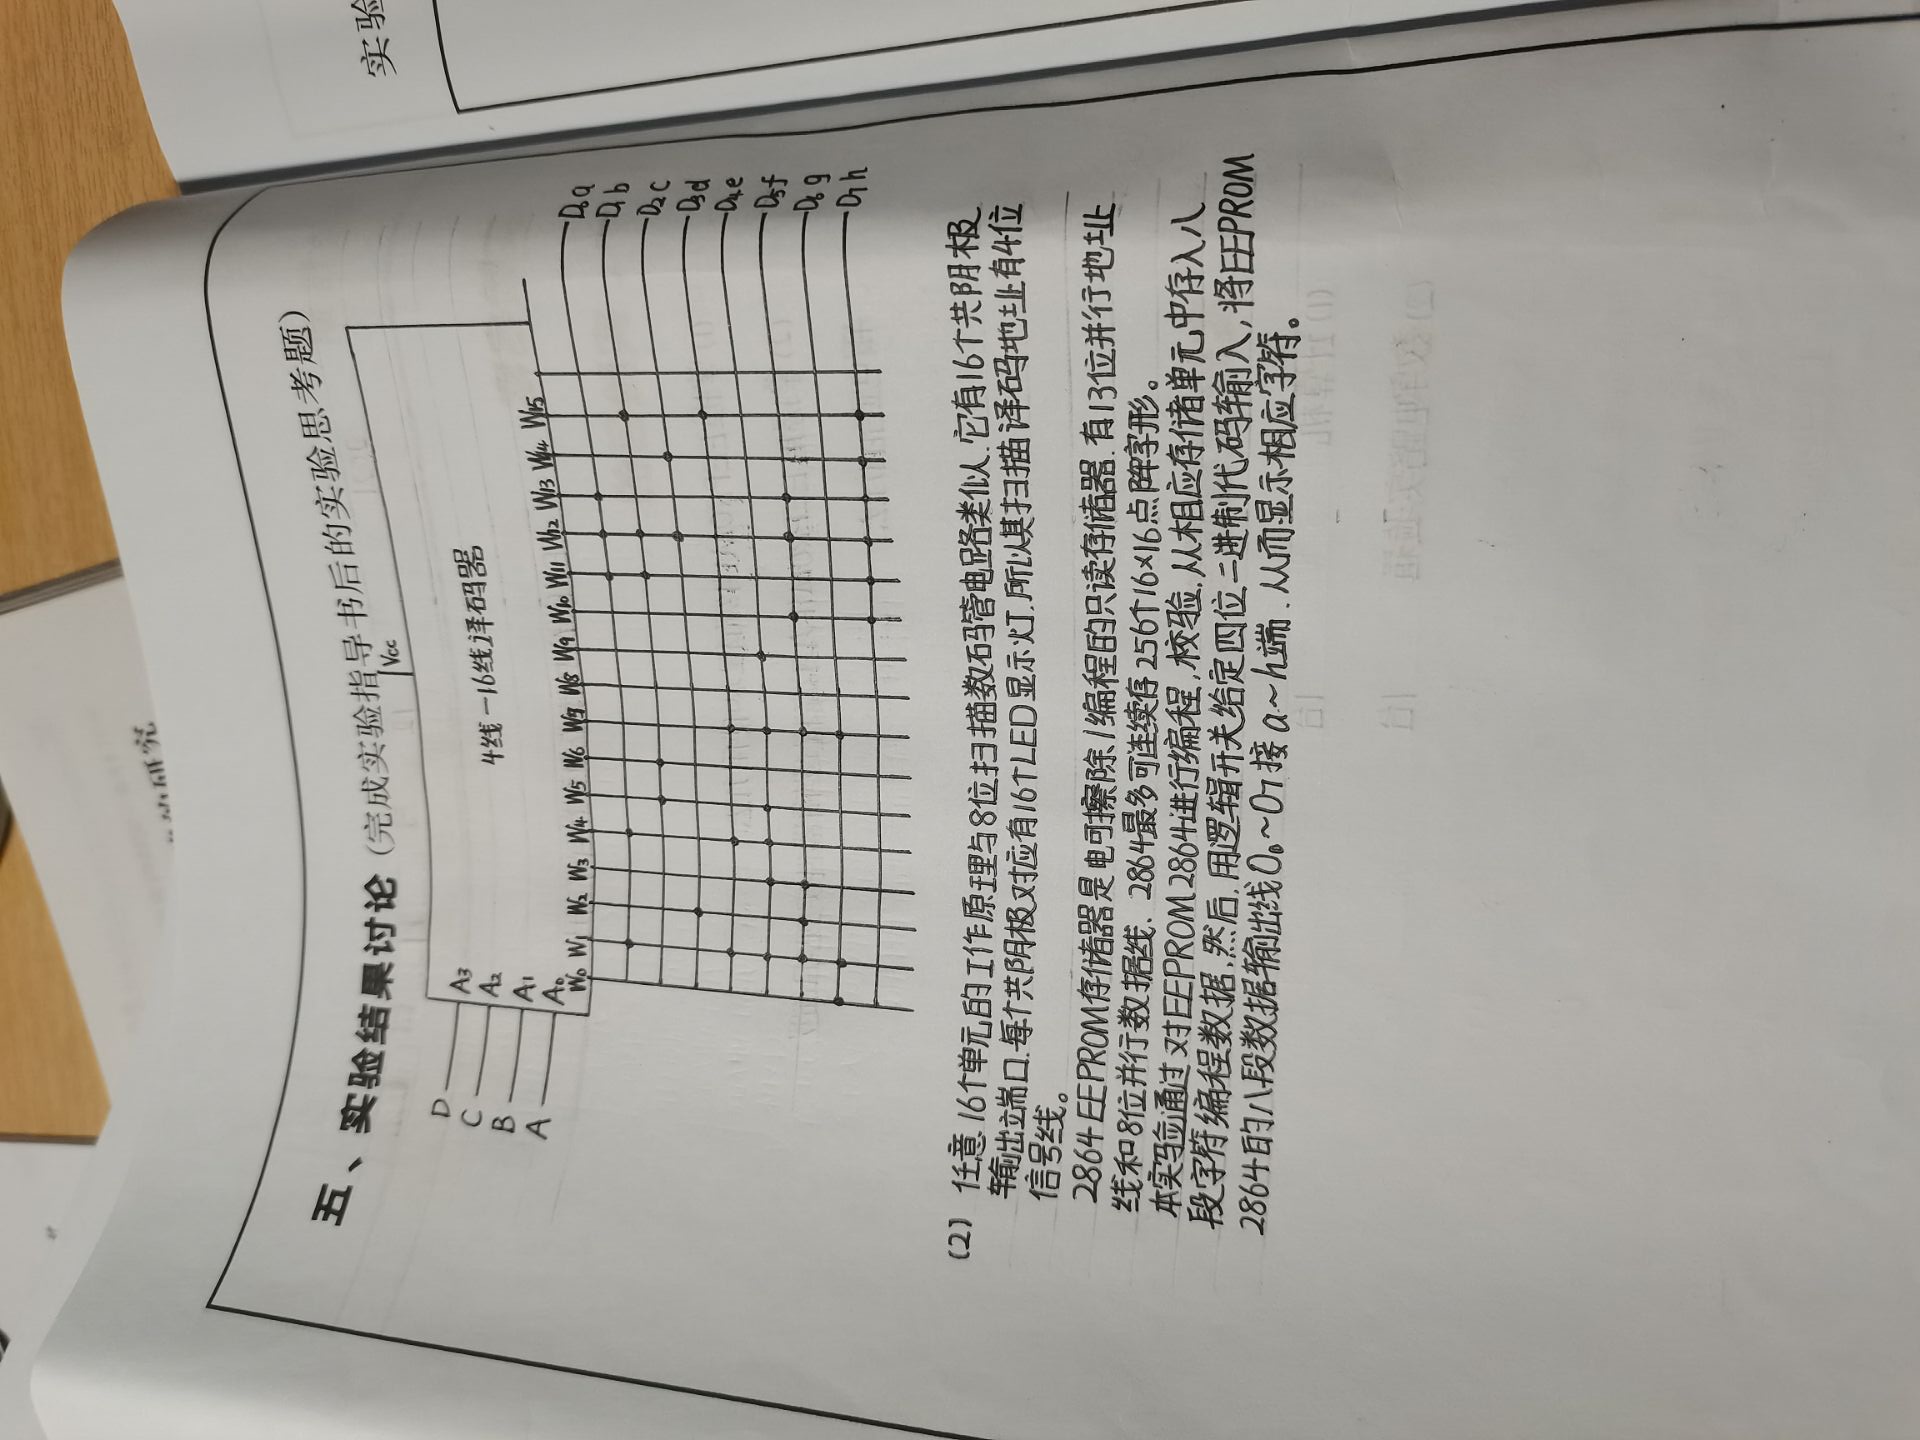 的研究
五、实验结果讨论(完成实验指导书后的实验思考题)
实验
Vcc
D A3
C A2
B A1
A A0
4线-16线译码器
W0 W1 W2 W3 W4 W5 W6 W7 W8 W9 W10 W11 W12 W13 W14 W15
D0 a
D1 b
D2 c
D3 d
D4 e
D5 f
D6 g
D7 h
(2) 任意16个单元的工作原理与8位扫描数码管电路类似.它有16个共阴极
输出立端口.每个共阴极对应有16个LED显示灯.所以其扫描译码地址有4位
信号线。
2864 EEPROM存储器是电可擦除/编程的只读存储器.有13位并行地址
线和8位并行数据线.2864最多可连续存256个16×16点阵字形。
本实验通过对EEPROM 2864进行编程,校验.从相应存储单元中存入八
段字符编程数据.然后.用逻辑开关给定四位二进制代码输入,将EEPROM
2864的八段数据输出线O0~O7接a~h端.从而显示相应字符。